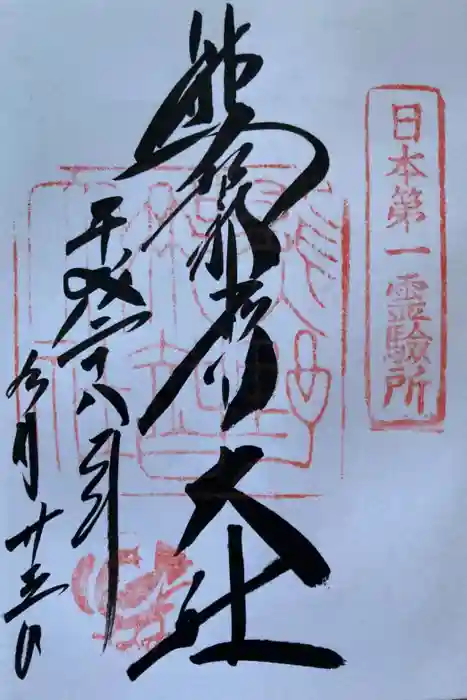 日本第一霊驗所
熊野那智大社
平成二十八年
月廿日